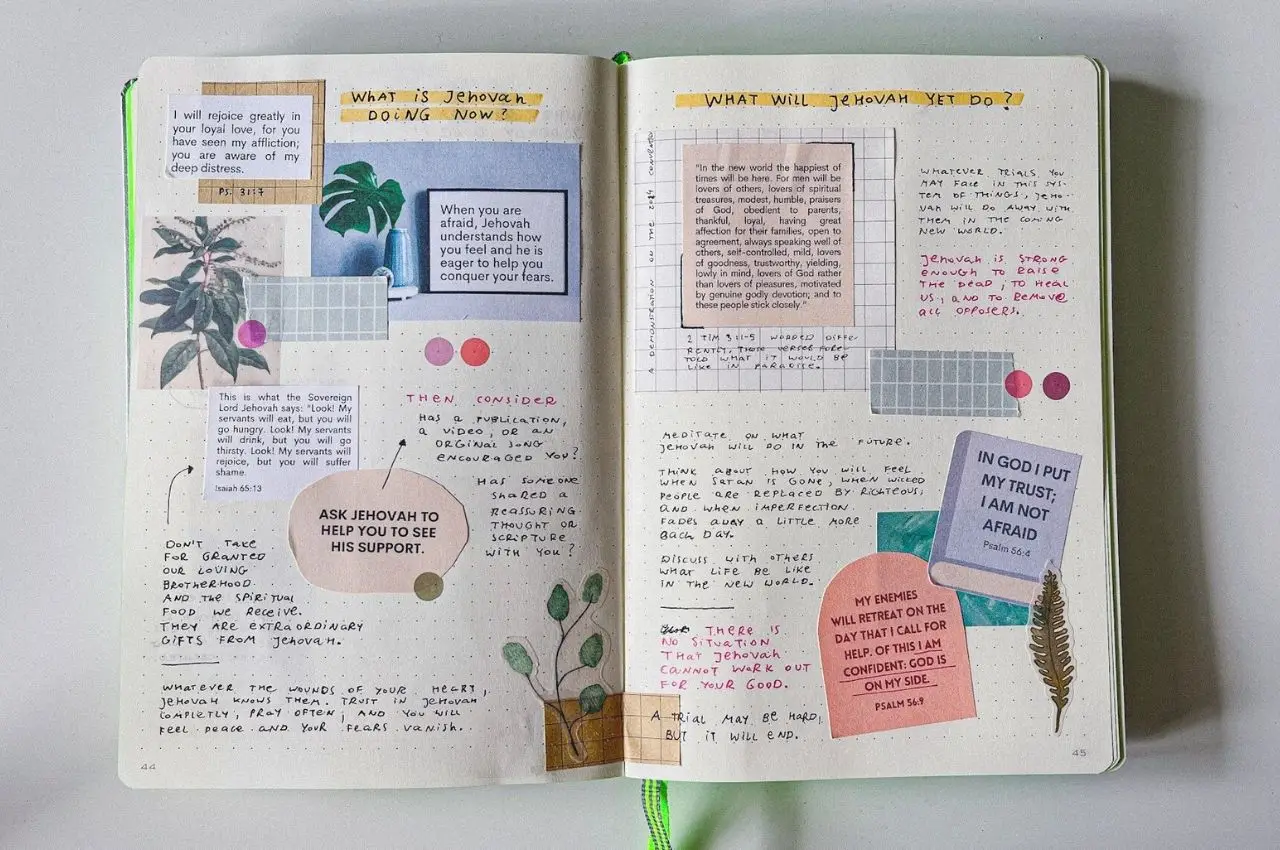 WHAT IS JEHOVAH
DOING NOW?
I will rejoice greatly in
your loyal love, for you
have seen my affliction;
you are aware of my
deep distress.
PS. 31:7
When you are
afraid, Jehovah
understands how
you feel and he is
eager to help you
conquer your fears.
This is what the Sovereign
Lord Jehovah says: "Look! My
servants will eat, but you will
go hungry. Look! My servants
will drink, but you will go
thirsty. Look! My servants will
rejoice, but you will suffer
shame.
Isaiah 65:13
THEN CONSIDER
HAS A PUBLICATION,
A VIDEO, OR AN
ORGINAL SONG
ENCOURAGED YOU?
HAS SOMEONE
SHARED A
REASSURING
THOUGHT OR
SCRIPTURE
WITH YOU?
ASK JEHOVAH TO
HELP YOU TO SEE
HIS SUPPORT.
DON'T TAKE
FOR GRANTED
OUR LOVING
BROTHERHOOD
AND THE SPIRITUAL
FOOD WE RECEIVE.
THEY ARE EXTRAORDINARY
GIFTS FROM JEHOVAH.
WHATEVER THE WOUNDS OF YOUR HEART,
JEHOVAH KNOWS THEM. TRUST IN JEHOVAH
COMPLETLY, PRAY OFTEN, AND YOU WILL
FEEL PEACE AND YOUR FEARS VANISH.
44
WHAT WILL JEHOVAH YET DO?
A DEMONSTRATION ON THE
"In the new world the happiest of
times will be here. For men will be
lovers of others, lovers of spiritual
treasures, modest, humble, praisers
of God, obedient to parents,
thankful, loyal, having great
affection for their families, open to
agreement, always speaking well of
others, self-controlled, mild, lovers
of goodness, trustworthy, yielding,
lowly in mind, lovers of God rather
than lovers of pleasures, motivated
by genuine godly devotion; and to
these people stick closely."
2 TIM 3:1-5 WORDED DIFFE-
RENTLY, THOSE VERSES FORE-
TOLD WHAT IT WOULD BE
LIKE IN PARADISE.
WHATEVER TRIALS YOU
MAY FACE IN THIS SYS-
TEM OF THINGS, JEHO-
VAH WILL DO AWAY WITH
THEM IN THE COMING
NEW WORLD.
JEHOVAH IS STRONG
ENOUGH TO RAISE
THE DEAD, TO HEAL
US, AND TO REMOVE
ALL OPPOSERS.
MEDITATE ON WHAT
JEHOVAH WILL DO IN THE FUTURE.
THINK ABOUT HOW YOU WILL FEEL
WHEN SATAN IS GONE, WHEN WICKED
PEOPLE ARE REPLACED BY RIGHTEOUS,
AND WHEN IMPERFECTION
FADES AWAY A LITTLE MORE
EACH DAY.
DISCUSS WITH OTHERS
WHAT LIFE BE LIKE
IN THE NEW WORLD.
THERE IS
NO SITUATION
THAT JEHOVAH
CANNOT WORK OUT
FOR YOUR GOOD.
A TRIAL MAY BE HARD,
BUT IT WILL END.
IN GOD I PUT
MY TRUST;
I AM NOT
AFRAID
Psalm 56:4
MY ENEMIES
WILL RETREAT ON THE
DAY THAT I CALL FOR
HELP. OF THIS I AM
CONFIDENT: GOD IS
ON MY SIDE.
PSALM 56:9
45